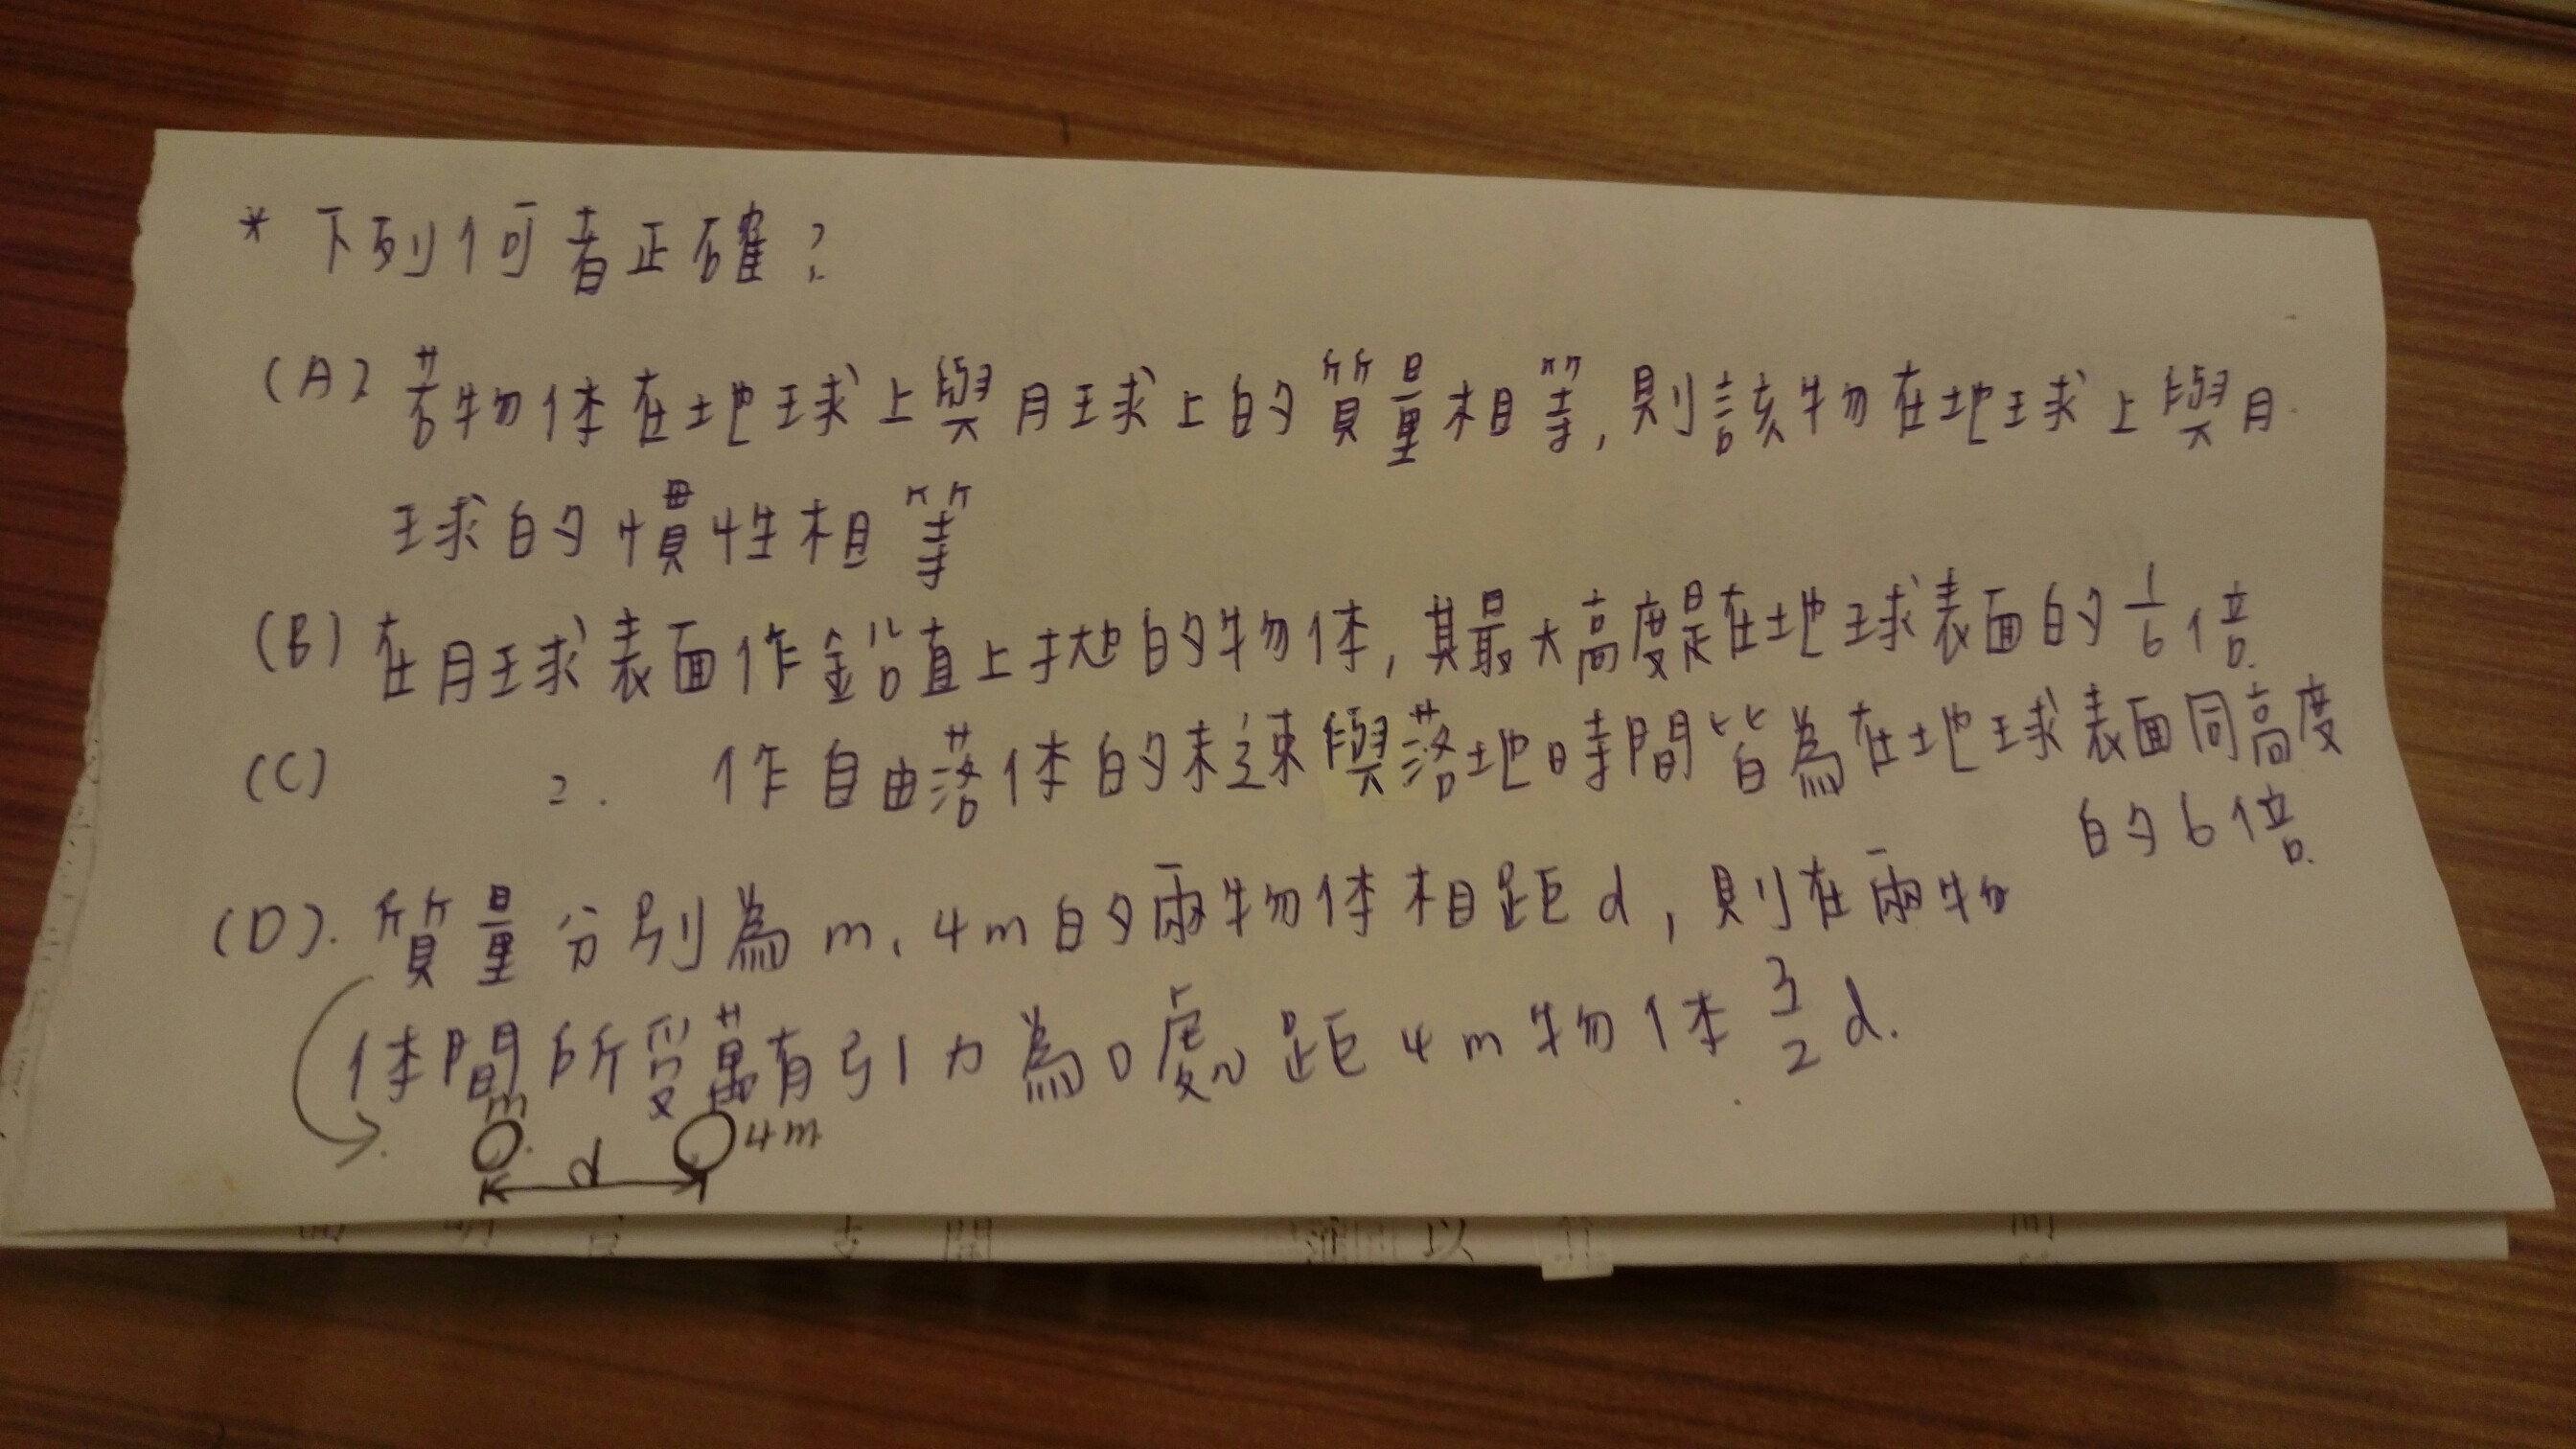 * 下列何者正確?
(A) 若物体在地球上與月球上的質量相等,則該物在地球上與月
球的慣性相等
(B) 在月球表面作鉛直上拋的物体,其最大高度是在地球表面的 1/6 倍.
(C) 〃. 作自由落体的末速與落地時間皆為在地球表面同高度
的6倍.
(D). 質量分別為m、4m的兩物体相距d,則在兩物
体間所受萬有引力為0處距4m物体 3/2 d.
m
4m
d